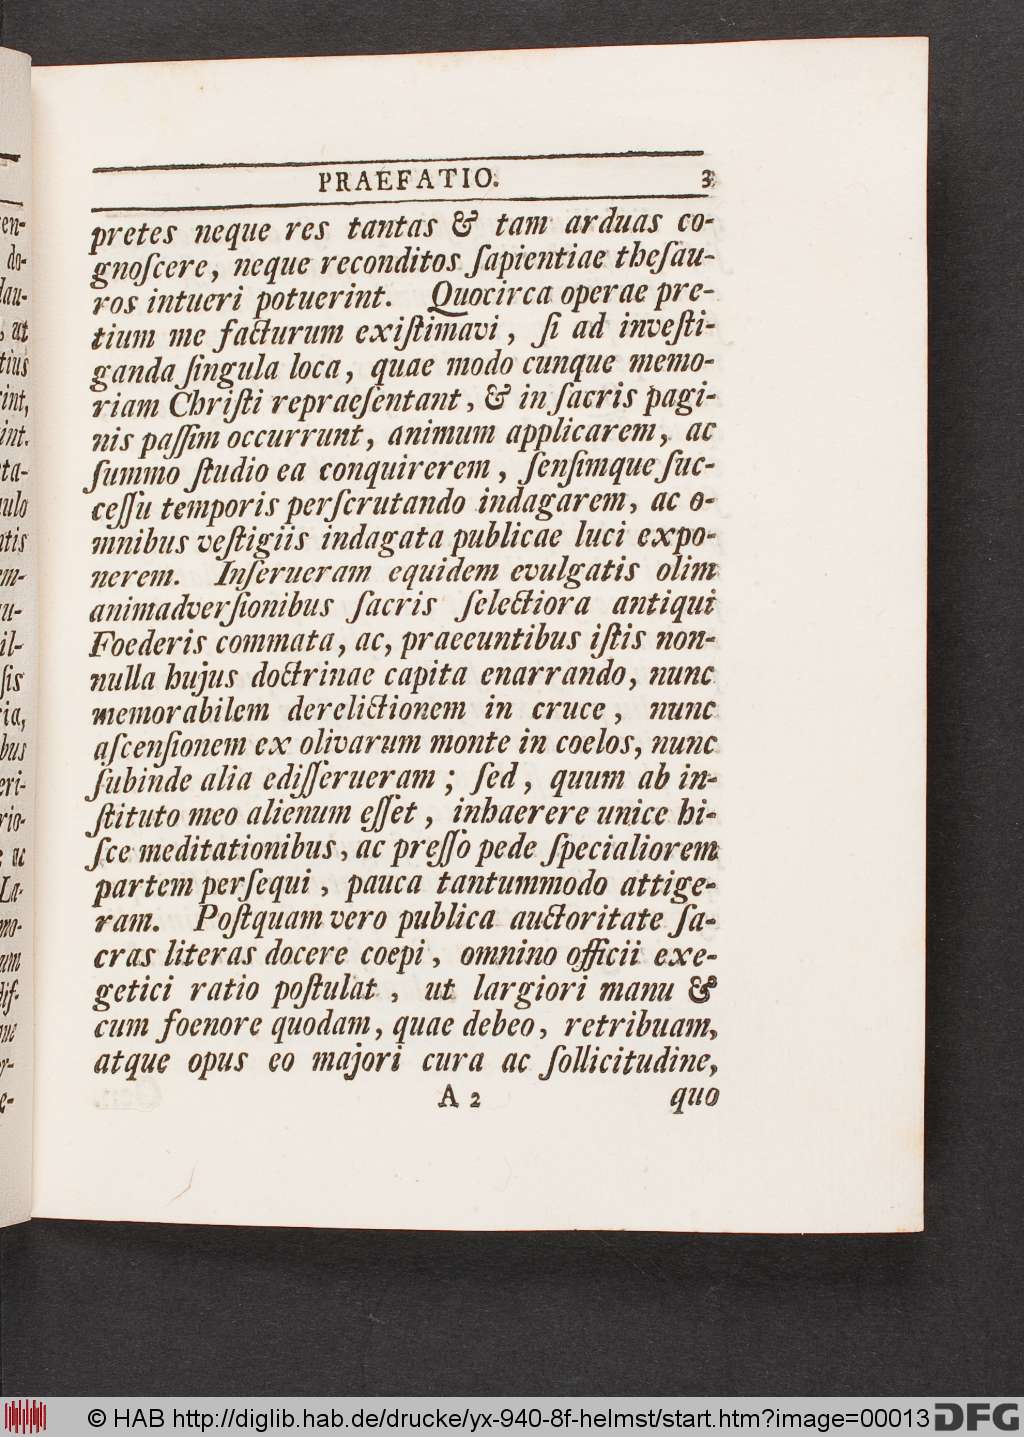 PRAEFATIO. 3
pretes neque res tantas & tam arduas co-
gnoſcere, neque reconditos ſapientiae theſau-
ros intueri potuerint. Quocirca operae pre-
tium me facturum exiſtimavi, ſi ad inveſti-
ganda ſingula loca, quae modo cunque memo-
riam Chriſti repraeſentant, & in ſacris pagi-
nis paſſim occurrunt, animum applicarem, ac
ſummo ſtudio ea conquirerem, ſenſimque ſuc-
ceſſu temporis perſcrutando indagarem, ac o-
mnibus veſtigiis indagata publicae luci expo-
nerem. Inſerueram equidem evulgatis olim
animadverſionibus ſacris ſelectiora antiqui
Foederis commata, ac, praeeuntibus iſtis non-
nulla hujus doctrinae capita enarrando, nunc
memorabilem derelictionem in cruce, nunc
aſcenſionem ex olivarum monte in coelos, nunc
ſubinde alia ediſſerueram; ſed, quum ab in-
ſtituto meo alienum eſſet, inhaerere unice hi-
ſce meditationibus, ac preſſo pede ſpecialiorem
partem perſequi, pauca tantummodo attige-
ram. Poſtquam vero publica auctoritate ſa-
cras literas docere coepi, omnino officii exe-
getici ratio poſtulat, ut largiori manu &
cum foenore quodam, quae debeo, retribuam,
atque opus eo majori cura ac ſollicitudine,
A 2 quo
© HAB http://diglib.hab.de/drucke/yx-940-8f-helmst/start.htm?image=00013 DFG